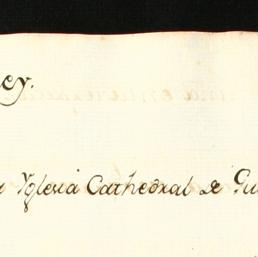 ey.
Yglesia Cathedral de Gu